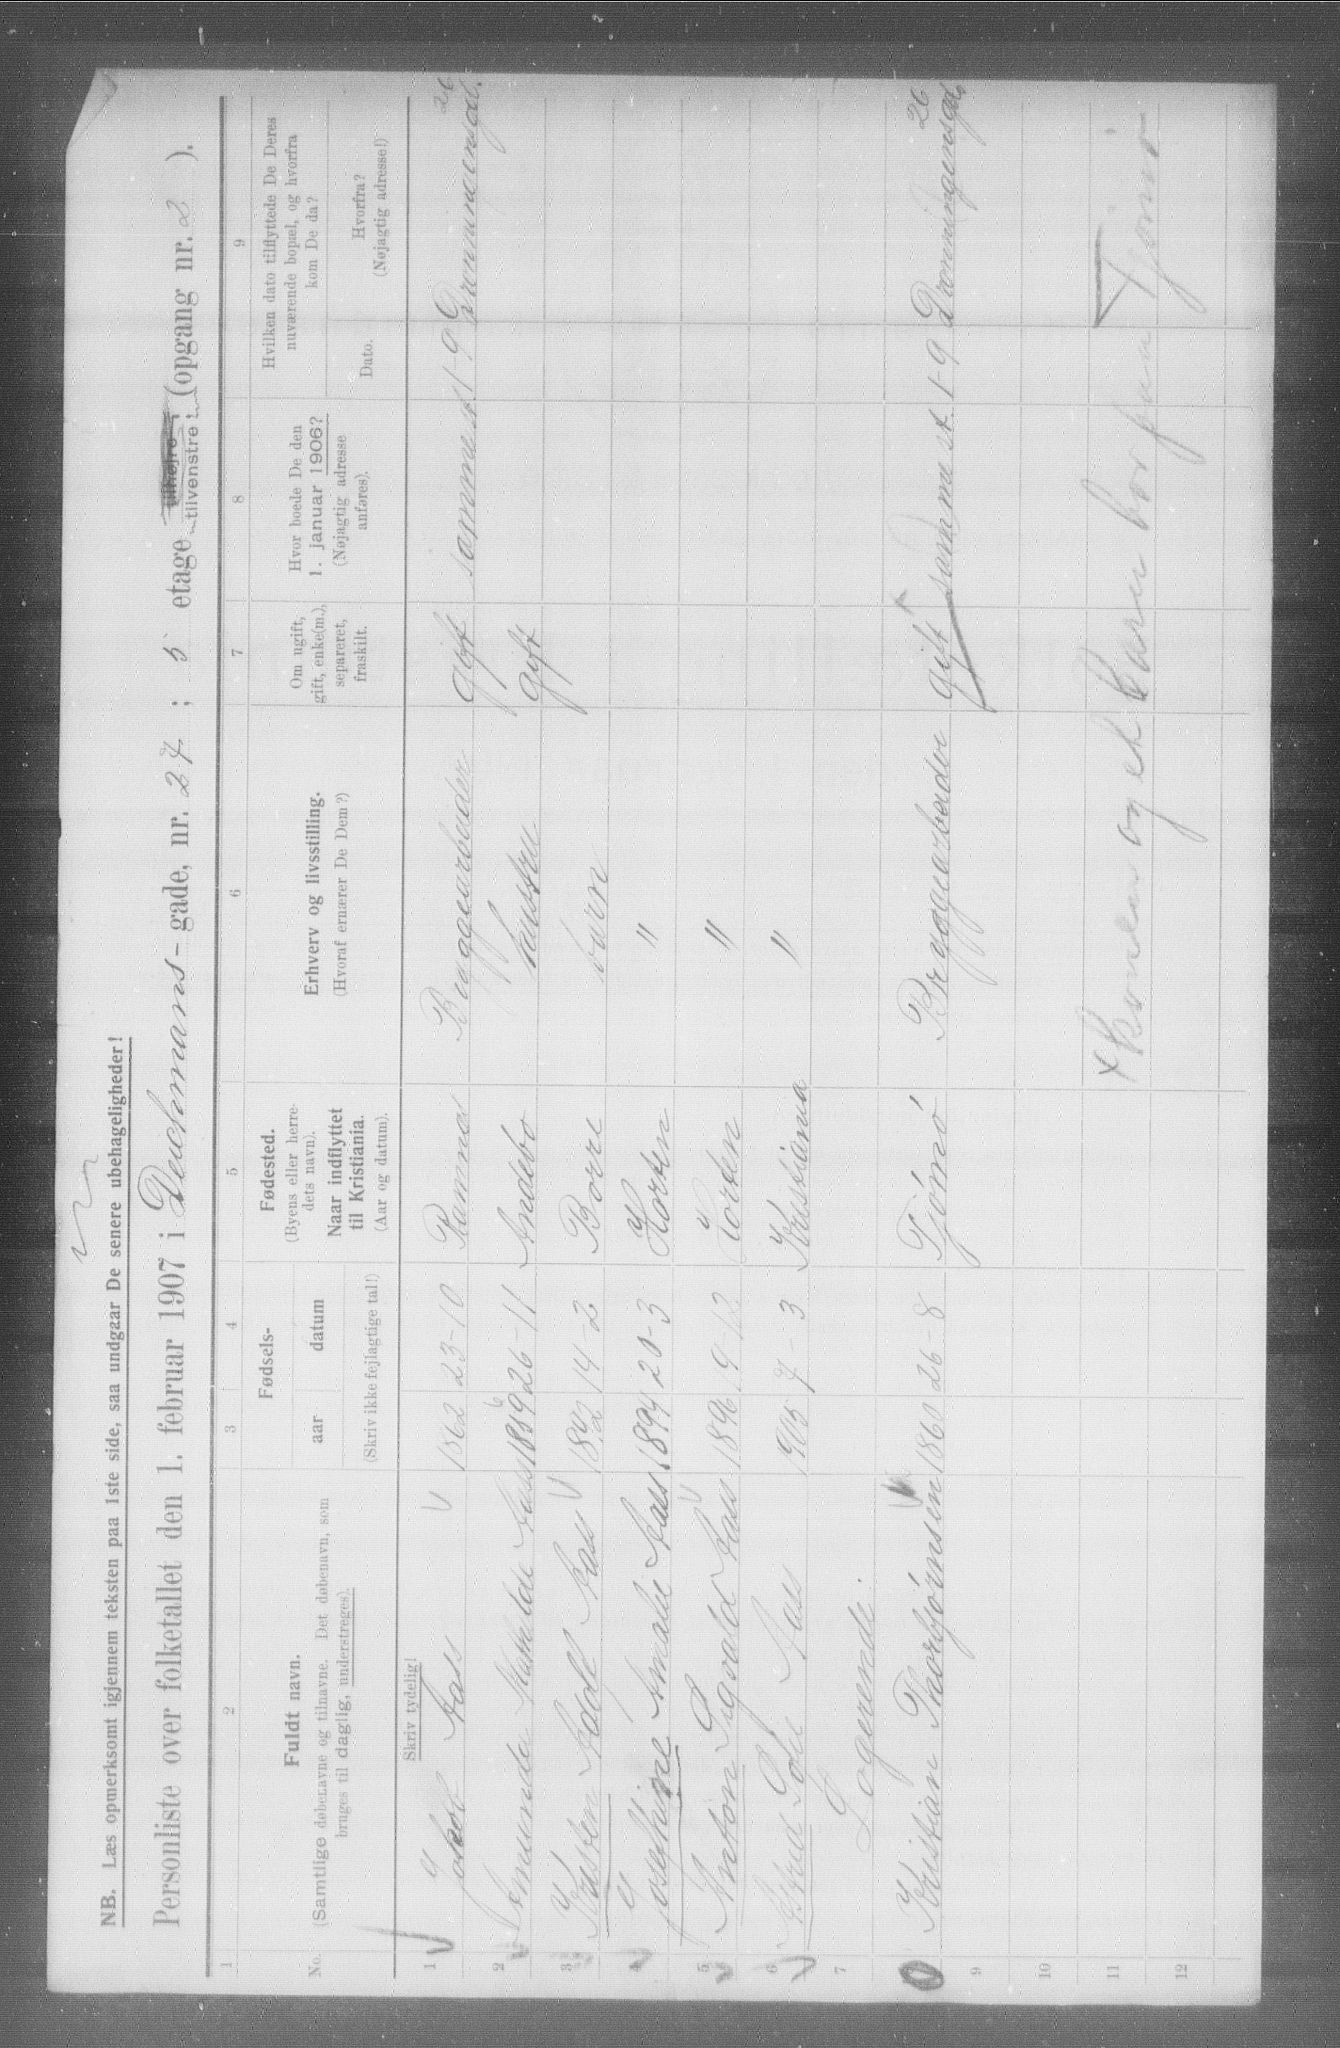 NB. Læs opmerksomt igjennem teksten paa 1ste side, saa undgaar De senere ubehageligheder!
Personliste over folketallet den 1. februar 1907 i Deichmans-gade, nr. 27; 5 etage tilhøjre, tilvenstre, (opgang nr. 2).
1 2 3 4 5 6 7 8 9
No.
Fuldt navn.
(Samtlige døbenavne og tilnavne. Det døbenavn, som
bruges til daglig, understreges).
Fødsels-
aar datum
(Skriv ikke fejlagtige tal!)
Fødested.
(Byens eller herre-
dets navn).
Naar indflyttet
til Kristiania.
(Aar og datum).
Erhverv og livsstilling.
(Hvoraf ernærer De Dem?)
Om ugift,
gift, enke(m.),
separeret,
fraskilt.
Hvor boede De den
1. januar 1906?
(Nøjagtig adresse
anføres).
Hvilken dato tilflyttede De Deres
nuværende bopæl, og hvorfra
kom De da?
Dato.
Hvorfra?
(Nøjagtig adresse!)
Skriv tydelig!
1 Jakob Aass 1862 23-10 Ramnæs Bryggearbeider gift samme st 1 9 Dronningensgd. 26
2 Mathilde Aass 26-11 Andebo hustru gift
3 Karsten Adolf Aass 1892 14-2 Borre barn
4 Josefhine Amalie Aass 1894 20-3 Horten "
5 Anton Sigvald Aass 1896 9-12 Horten "
6 Sofie Aass 1905 7-3 Kristiania "
7 Logerende
Kristian Thorbjørnsen 1860 26-8 Tjømø Bryggearbeider gift samme st. 1-9 Dronningensgd 26
9
10
11 x Konen og et barn bor paa Tjømø
12